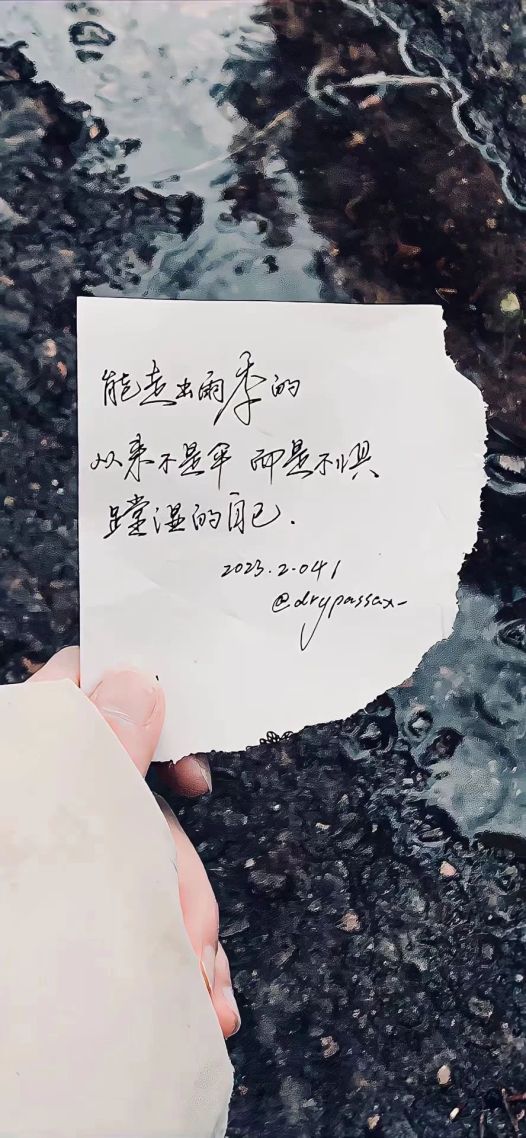 能走出雨季的
从来不是伞 而是不惧
蹚湿的自己.
2023.2.041
@drypassax_